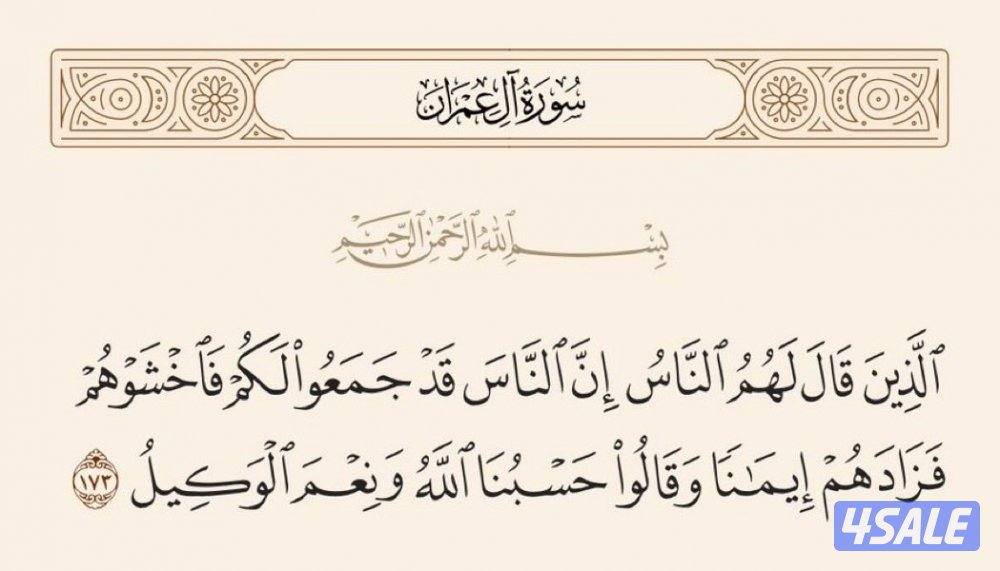 سُورَةُ آلِ عِمْرَان
بِسْمِ ٱللَّهِ ٱلرَّحْمَٰنِ ٱلرَّحِيمِ
ٱلَّذِينَ قَالَ لَهُمُ ٱلنَّاسُ إِنَّ ٱلنَّاسَ قَدْ جَمَعُوا۟ لَكُمْ فَٱخْشَوْهُمْ
فَزَادَهُمْ إِيمَٰنًا وَقَالُوا۟ حَسْبُنَا ٱللَّهُ وَنِعْمَ ٱلْوَكِيلُ ١٧٣
4SALE